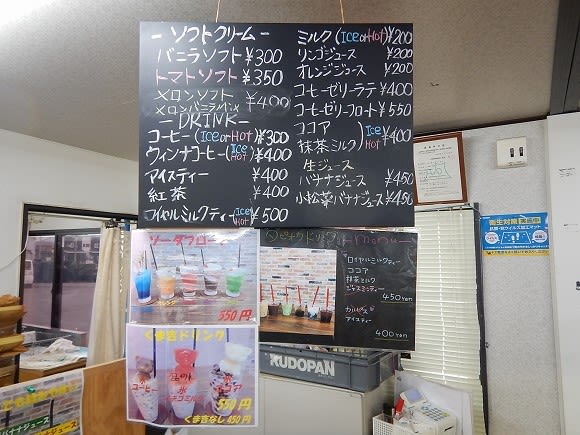 ーソフトクリームー
バニラソフト ¥300
トマトソフト ¥350
メロンソフト
メロンバニラMix ¥400
ーDRINKー
コーヒー(Ice or Hot) ¥300
ウィンナコーヒー(Ice Hot) ¥400
アイスティー ¥400
紅茶 ¥400
ロイヤルミルクティー(Ice Hot) ¥500
ミルク(Ice or Hot) ¥200
リンゴジュース ¥200
オレンジジュース ¥200
コーヒーゼリーラテ ¥400
コーヒーゼリーフロート ¥550
ココア
抹茶ミルク) Ice Hot ¥400
生ジュース
バナナジュース ¥450
小松菜バナナジュース ¥450
ソーダフロート
550円
くま吉ドリンク
氷
コーヒー
氷
イチゴミルク
氷
ココア
550円
くま吉なし 450円
タピオカドリンク
ーmenuー
ロイヤルミルクティー
ココア
抹茶ミルク
ジャスミンティー
450yen
カルピス
アイスティー
400yen
衛生対策
KUDOPAN
バナナジュース